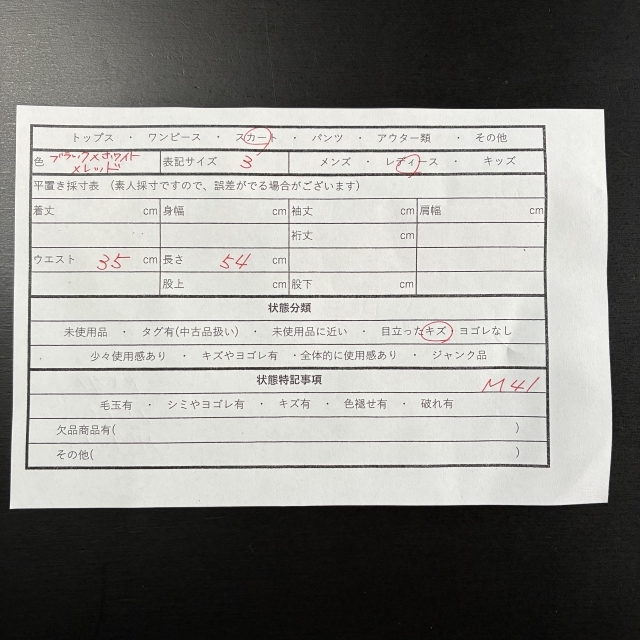 トップス ・ ワンピース ・ スカート ・ パンツ ・ アウター類 ・ その他
色 ブラック×ホワイト×レッド 表記サイズ 3 メンズ ・ レディース ・ キッズ
平置き採寸表 (素人採寸ですので、誤差がでる場合がございます)
着丈 cm 身幅 cm 袖丈 cm 肩幅 cm
裄丈 cm
ウエスト 35 cm 長さ 54 cm
股上 cm 股下 cm
状態分類
未使用品 ・ タグ有(中古品扱い) ・ 未使用品に近い ・ 目立ったキズ ヨゴレなし
少々使用感あり ・ キズやヨゴレ有 ・全体的に使用感あり ・ ジャンク品
状態特記事項 M41
毛玉有 ・ シミやヨゴレ有 ・ キズ有 ・ 色褪せ有 ・ 破れ有
欠品商品有( )
その他( )